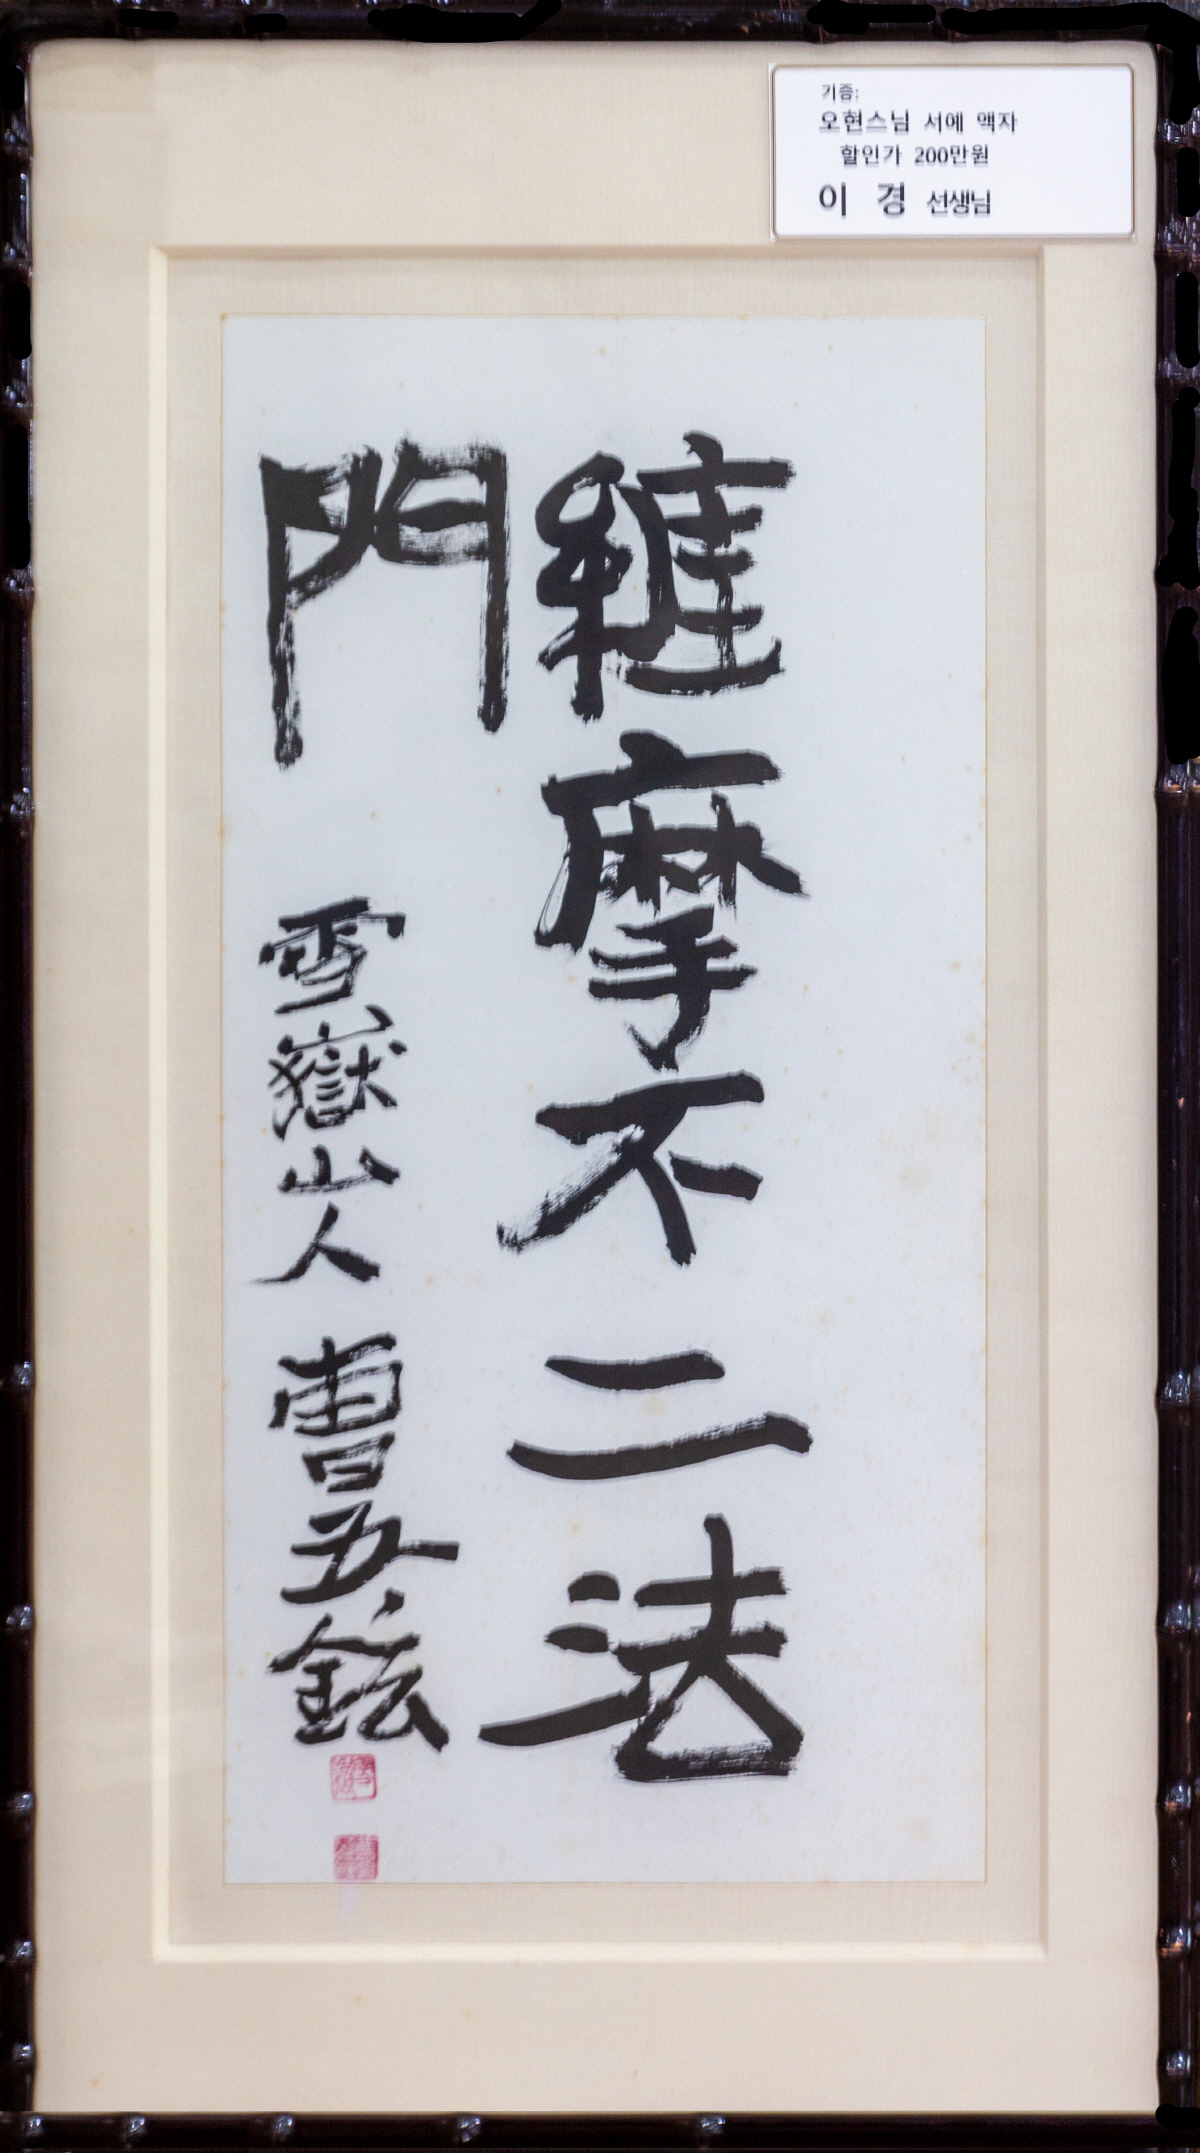 기증:
오현스님 서예 액자
할인가 200만원
이 경 선생님
維摩不二法
門
雪嶽山人 曺五鉉